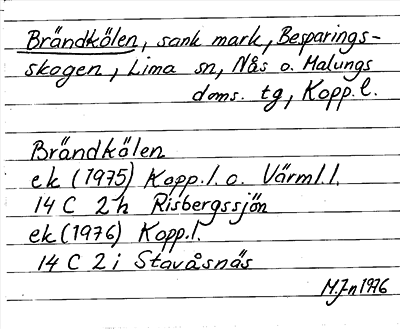 Brändkölen, sank mark, Besparings-
skogen, Lima sn, Nås o. Malungs
doms. tg, Kopp. l.
Brändkölen
ek (1975) Kopp. l. o. Värml. l.
14 C 2 h Risbergssjön
ek (1976) Kopp. l.
14 C 2 i Stavåsnäs
M.Jn 1976